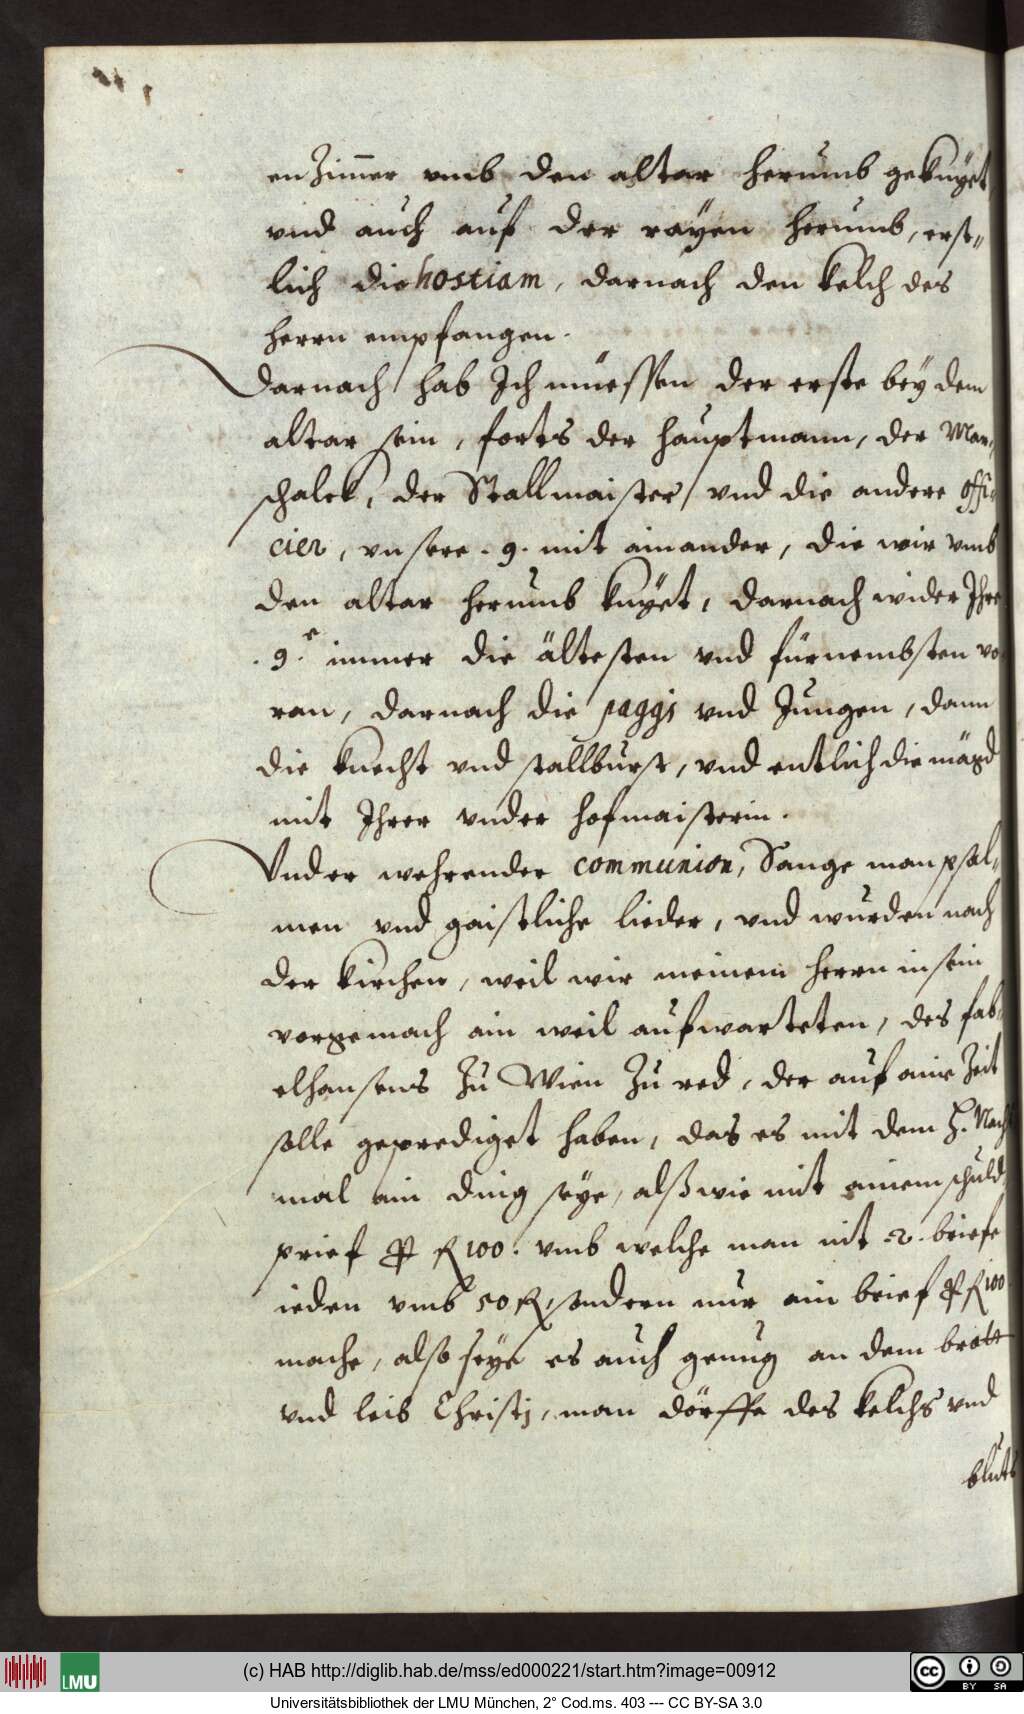 en Zimmer vmb den altar herumb geknÿet
vnd auch auf der rayen herumb, erst-
lich die hostiam, darnach den kelch des
herrn empfangen.
Darnach hab Ich müessen der erste beÿ dem
altar sein, forts der hauptmann, der Mar-
schalck, der Stallmaister, vnd die andere offi-
cier, vnsere .9. mit ainander, die wir vmb
den altar herumb knÿet, darnach wider Ihre
.9. immer die ältesten vnd fürnembsten vo
ran, darnach die paggj vnd Jungen, dann
die knecht vnd stallburst, vnd entlich die mägd
mit Ihrer vnder hofmaisterin.
Vnder wehrender communion, Sange man psal-
men vnd gaistliche lieder, vnd wurden nach
der kirchen, weil wir meinem herrn in sein
vorgemach ain weil aufwarteten, des fab-
elhansens Zu Wien Zu red, der auf aine Zeit
solle geprediget haben, das es mit dem H. Nacht
mal ain ding seye, alß wie mit ainem schuld
prief p fl 100. vmb welche man nit .2. briefe
ieden vmb 50 fl, sondern nur ain brief p fl 100
mache, also seye es auch genug an dem brott
vnd leib Christj, man dörffe des kelchs vnd
bluts
(c) HAB http://diglib.hab.de/mss/ed000221/start.htm?image=00912
LMU
cc BY SA
Universitätsbibliothek der LMU München, 2° Cod.ms. 403 --- CC BY-SA 3.0